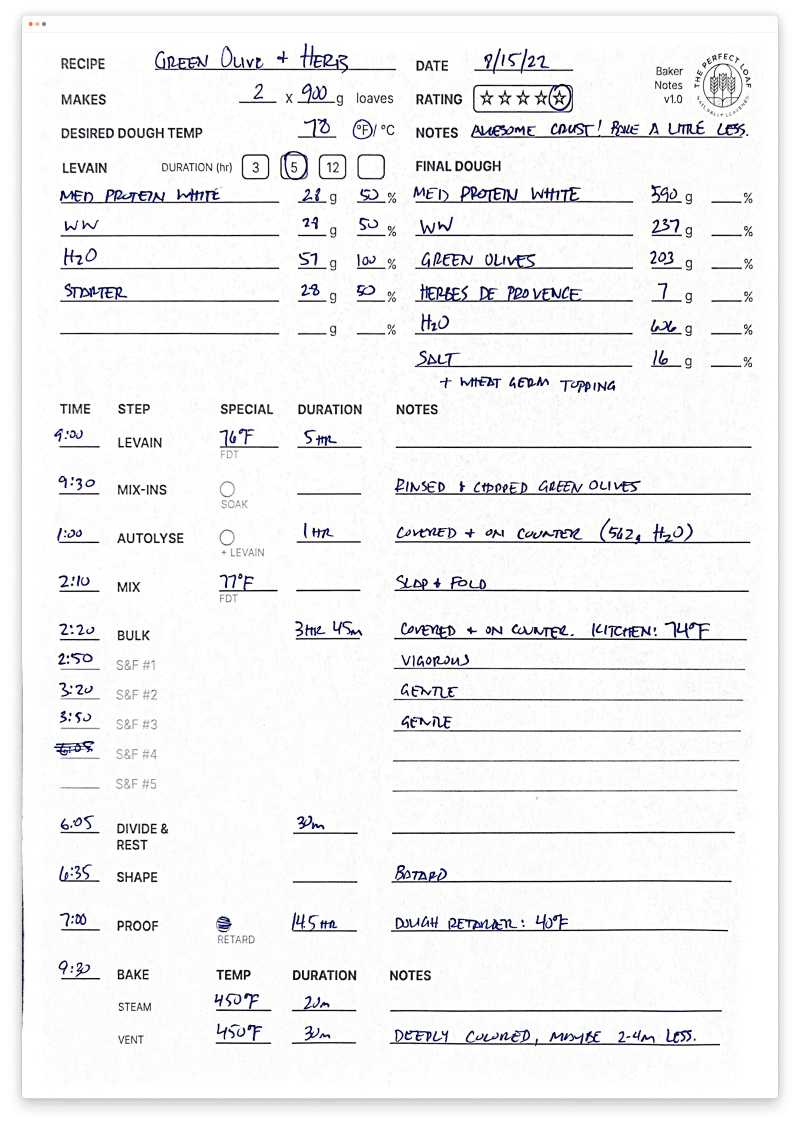 RECIPE GREEN OLIVE + HERB
DATE 8/15/22
Baker Notes v1.0
THE PERFECT LOAF NATURALLY LEAVENED
MAKES 2 x 900 g loaves
RATING
DESIRED DOUGH TEMP 78 °F / °C
NOTES AWESOME CRUST! BAKE A LITTLE LESS.
LEVAIN DURATION (hr) 3 5 12
FINAL DOUGH
MED PROTEIN WHITE 28 g 50 %
MED PROTEIN WHITE 590 g %
WW 28 g 50 %
WW 237 g %
H2O 57 g 100 %
GREEN OLIVES 203 g %
STARTER 28 g 50 %
HERBES DE PROVENCE 7 g %
g %
H2O 606 g %
SALT 16 g %
+ WHEAT GERM TOPPING
TIME STEP SPECIAL DURATION NOTES
9:00 LEVAIN 76°F 5 HR
FDT
9:30 MIX-INS RINSED + CHOPPED GREEN OLIVES
SOAK
1:00 AUTOLYSE 1 HR COVERED + ON COUNTER (562g H2O)
+ LEVAIN
2:10 MIX 77°F SLAP + FOLD
FDT
2:20 BULK 3HR 45m COVERED + ON COUNTER. KITCHEN: 74°F
2:50 S&F #1 VIGOROUS
3:20 S&F #2 GENTLE
3:50 S&F #3 GENTLE
6:05 S&F #4
S&F #5
6:05 DIVIDE & REST 30m
6:35 SHAPE BATARD
7:00 PROOF 14.5 HR DOUGH RETARDER: 40°F
RETARD
9:30 BAKE TEMP DURATION NOTES
STEAM 450°F 20m
VENT 450°F 30m DEEPLY COLORED, MAYBE 2-4m LESS.